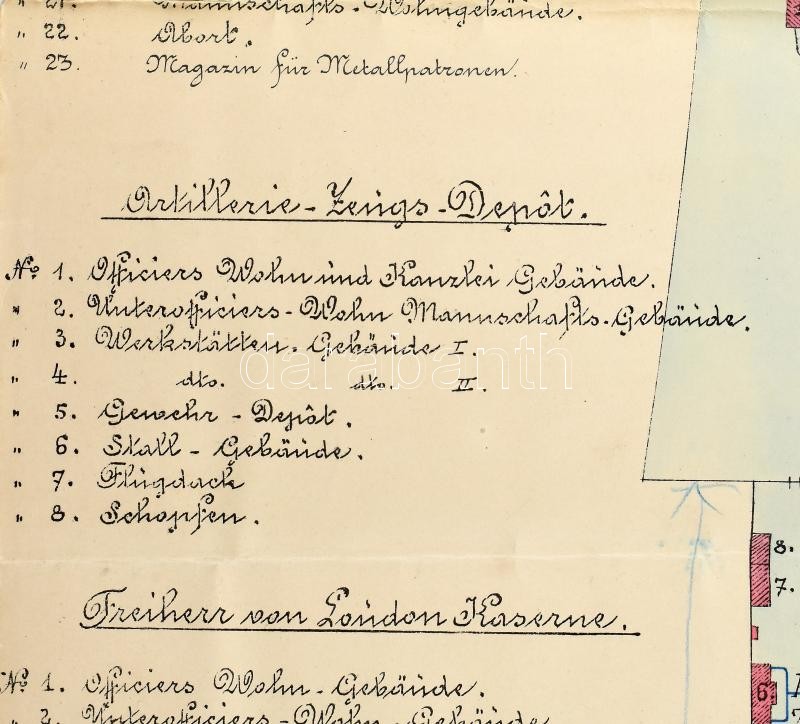 " 21. Mannschafts-Wohngebäude.
" 22. Abort.
" 23. Magazin für Metallpatronen.
Artillerie-Zeugs-Depôt.
No. 1. Officiers Wohn und Kanzlei Gebäude.
" 2. Unterofficiers-Wohn Mannschafts-Gebäude.
" 3. Werkstätten-Gebäude I.
" 4. dto. dto. II.
" 5. Gewehr-Depôt.
" 6. Stall-Gebäude.
" 7. Flugdach
" 8. Schopfen.
Freiherr von Loudon Kaserne.
No. 1. Officiers Wohn-Gebäude.
" 2. Unterofficiers-Wohn-Gebäude
8.
7.
6.
darabanth